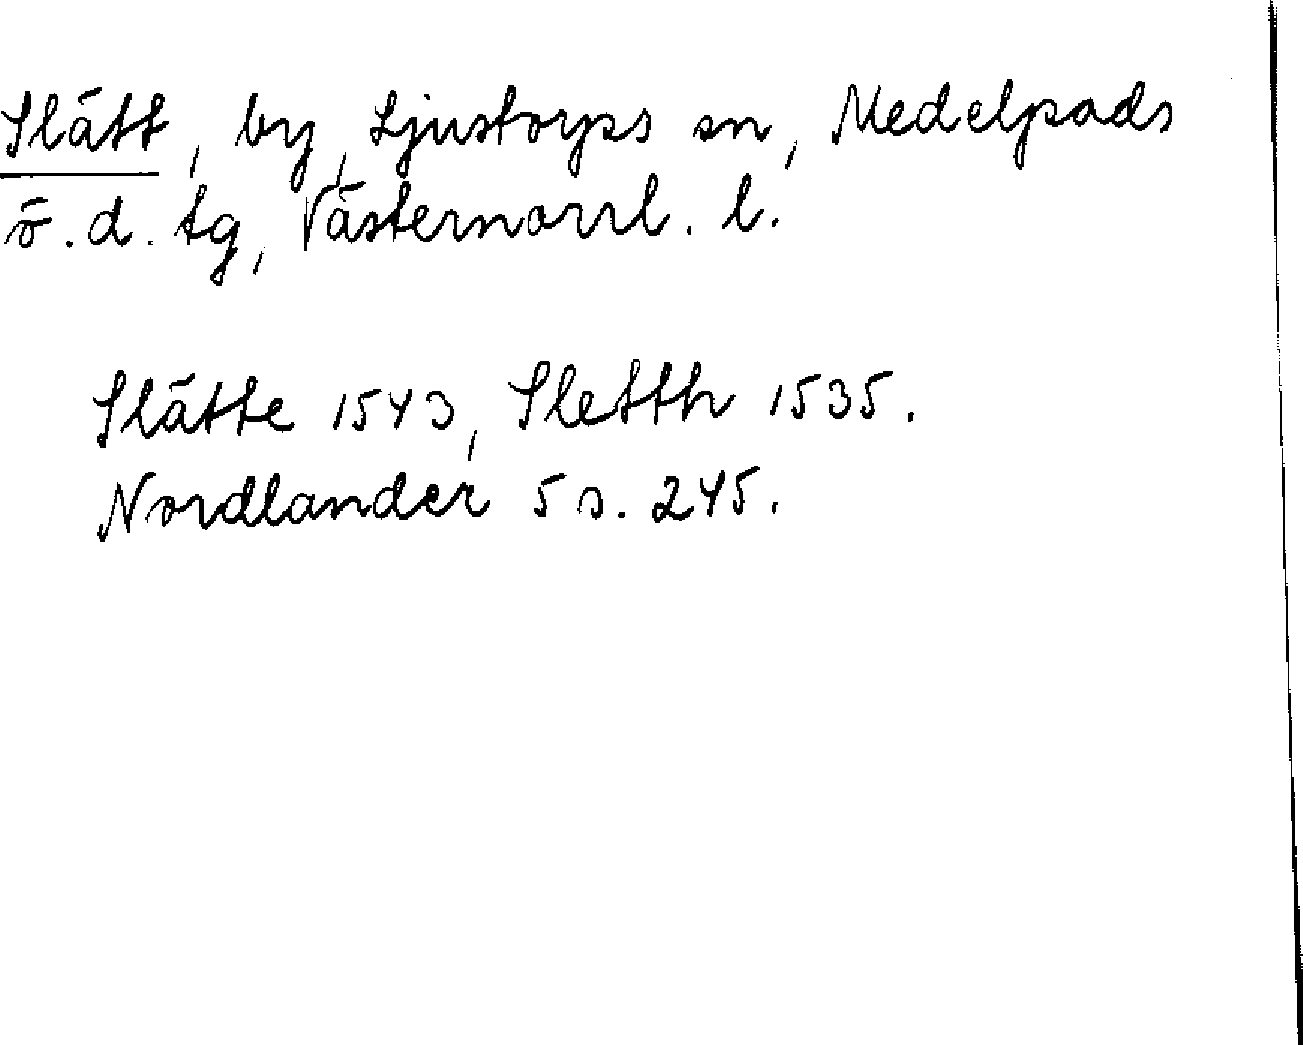 Slätt, by, Ljustorps sn, Medelpads
ö. d. tg, Västernorrl. l.
Slätte 1543, Sletth 1535.
Nordlander 5 s. 245.